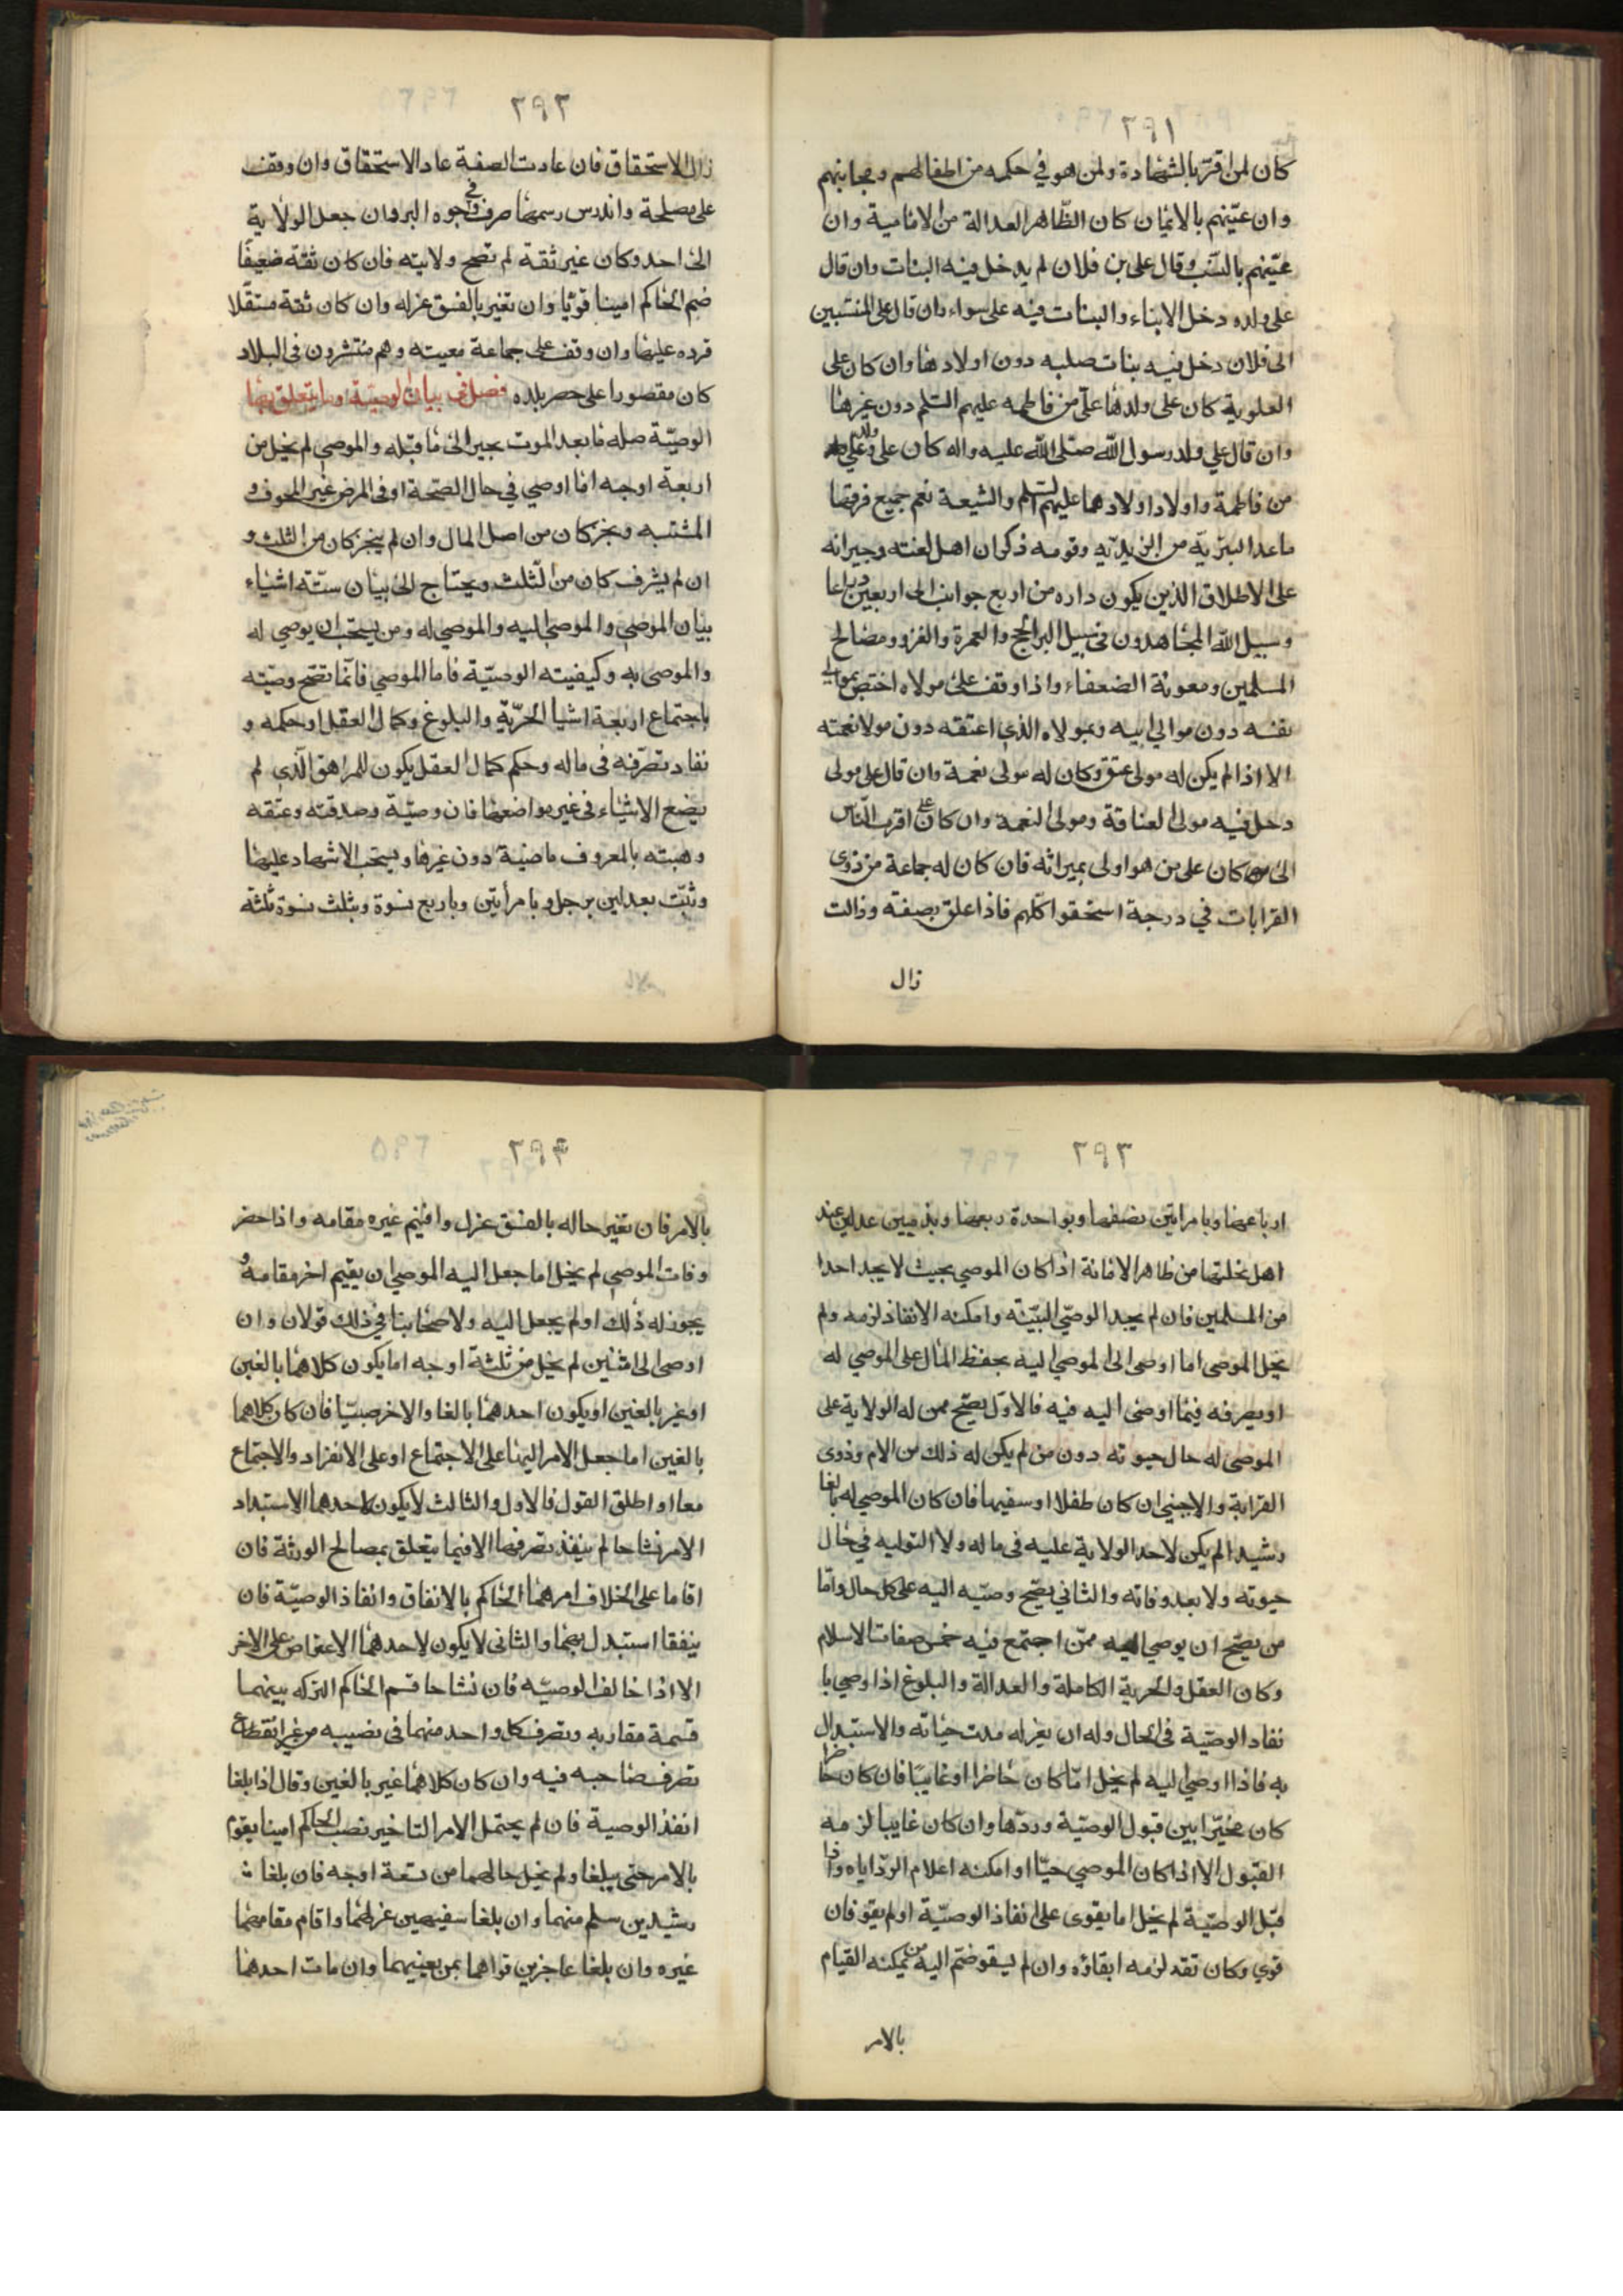 ٢٩١
كان لمن اقرّ بالشهادة ولمن هو في حكمه من اطفالهم ومجانينهم
وان عيّنهم بالايمان كان الظاهر العدالة من الامامية وان
عيّنهم بالنسب وقال على بن فلان لم يدخل فيه البنات وان قال
على ولده دخل الابناء والبنات فيه على سواء وان قال على المنتسبين
الى فلان دخل فيه بنات صلبه دون اولادها وان كان على
العلوية كان على ولد علىّ من فاطمه عليهم السلم دون غيرها
وان قال علي ولد رسول الله صلى الله عليه واله كان على ولد علي
من فاطمة واولاد اولادهما عليهم السلم والشيعة نعم جميع فرقها
ماعدا البتريّة من الزيديّه وقومه ذكران اهل لغته وجيرانه
على الاطلاق الذين يكون داره من اربع جوانب الى اربعين ذراعا
وسبيل الله المجاهدون في سبيل البر الحج والعمرة والغزو ومصالح
المسلمين ومعونة الضعفاء واذا وقف على مولاه اختص بموالي
نفسه دون موالي ابيه وبمولاه الذي اعتقه دون مولا نعمته
الا اذا لم يكن له مولى عتق وكان له مولى نعمة وان قال على مولى
دخل فيه مولى العتاقة ومولى النعمة وان كان على اقرب الناس
الى كان على من هو اولى بميراثه فان كان له جماعة من ذوى
القرابات في درجة استحقوا كلهم فاذا علق بصفة وزالت
زال
٢٩٢
زال الاستحقاق فان عادت الصفة عاد الاستحقاق وان وقف
على مصلحة واندرس رسمها صرف في وجوه البر وان جعل الولاية
الى احد وكان غير ثقة لم تصح ولايته فان كان ثقة ضعيفًا
ضم الحاكم امينا قويّا وان تغير بالفسق عزله وان كان ثقة مستقّلا
قرده عليها وان وقف على جماعة معينه وهم منتشرون في البلاد
كان مقصورا على حصر بلده فصل في بيان الوصيّة وما يتعلق بها
الوصيّة صله ما بعد الموت بخير الى ما قبله والموصي لم يخل من
اربعة اوجه اما اوصي في حال الصّحة او في المرض غير المخوف و
المشتبه ونجز كان من اصل المال وان لم ينجز كان من الثلث و
ان لم يشرف كان من الثلث ويحتاج الى بيان ستّة اشياء
بيان الموصي والموصى اليه والموصي له ومن يستحب ان يوصي له
والموصى به وكيفيته الوصيّة فاما الموصي فانّما تصح وصيّته
باجتماع اربعة اشيا الحرّية والبلوغ وكمال العقل او حكمه و
نفاد تصرّفه في ماله وحكم كمال العقل يكون للمراهق الّذي لم
يضع الاشياء في غير مواضعها فان وصيّة وصدقته وعتقه
وهبته بالمعروف ماضية دون غيرها ويستحب الاشهاد عليها
وتثبّت بعدلين برجل وبامرأتين وباربع نسوة وبثلث نسوة ثلثة
٢٩٣
ارباعها وبامرايتن نصفها وبواحدة ربعها وبذميين عدلين عند
اهل نحلتها من ظاهر الامانة اذا كان الموصي بحيث لا يجد احدا
من المسلمين فان لم يجد الوصّي البيّنه وامكنه الانفاذ لزمه ولم
يخل الموصى اما اوصى الى الموصي اليه بحفظ المال على الموصي له
او يصرفه فيما اوصى اليه فيه فالاوّل يصّح ممن له الولاية على
الموصى له حال حيوته دون من لم يكن له ذلك من الام وذوى
القرابة والاجنبي ان كان طفلا او سفيها فان كان الموصي له بالغا
رشيدا لم يكن لاحد الولاية عليه في ماله ولا التوليه في حال
حيوته ولا بعد وفاته والثاني يصّح وصيّه اليه على كل حال وامّا
من يصّح ان يوصي اليه ممّن اجتمع فيه خمس صفات الاسلام
وكان العقل والحرية الكاملة والعدالة والبلوغ اذا وصي با
نفاد الوصيّة في الحال وله ان يعزله مدت حياته والاستبدال
به فاذا اوصي اليه لم يخل امّا كان حاضرا او غايبًا فان كان حاضرا
كان مخيّرا بين قبول الوصيّة وردّها وان كان غايبا لزمه
القبول الا اذا كان الموصي حيّا او امكنه اعلام الردّ اياه واذا
قبّل الوصيّة لم يخل اما يقوى على انفاذ الوصيّة او لم يقو فان
قوي وكان تقد لزمه ابقاؤه وان لم يقو ضّم اليه من يمكنه القيام
بالامر
٢٩٤
بالامر فان تغير حاله بالفسق عزل واقيم غيره مقامه واذا حضر
وفات الموصي لم يخل اما جعل اليه الموصي ان يقيم اخر مقامه و
يجوز له ذلك او لم يجعل اليه ولاصحابنا في ذلك قولان وان
اوصى الى اثنين لم يخل من ثلثة اوجه اما يكون كلاهما بالغين
او غير بالغين او يكون احدهما بالغا والاخر صبيّا فان كان كلاهما
بالغين اما جعل الامر اليهما على الاجتماع او على الانفراد والاجتماع
معا او اطلق القول فالاول والثالث لا يكون لاحدهما الاستبداد
الامر تشاحا لم ينفذ تصرفهما الا فيما يتعلق بمصالح الورثة فان
اقاما على الخلاف امرهما الحاكم بالاتفاق وانفاذ الوصيّة فان
يتفقا استبدل بهما والثاني لا يكون لاحدهما الاعتراض على الاخر
الا اذا خالف الوصيّه فان تشاحا قسم الحاكم التركه بينهما
قسمة مقاربه وتصرف كل واحد منهما في نصيبه من غير انقطاع
تصرف صاحبه فيه وان كان كلاهما غير بالغين وقال اذا بلغا
انفذ الوصية فان لم يحتمل الامر التاخير نصب الحاكم امينا يقوم
بالامر حتى يبلغا ولم يخل حالهما من تسعة اوجه فان بلغا
رشيدين سلم منهما وان بلغا سفيهين عزلهما واقام مقامهما
غيره وان بلغا عاجزين قواهما بمن يعينهما وان مات احدهما